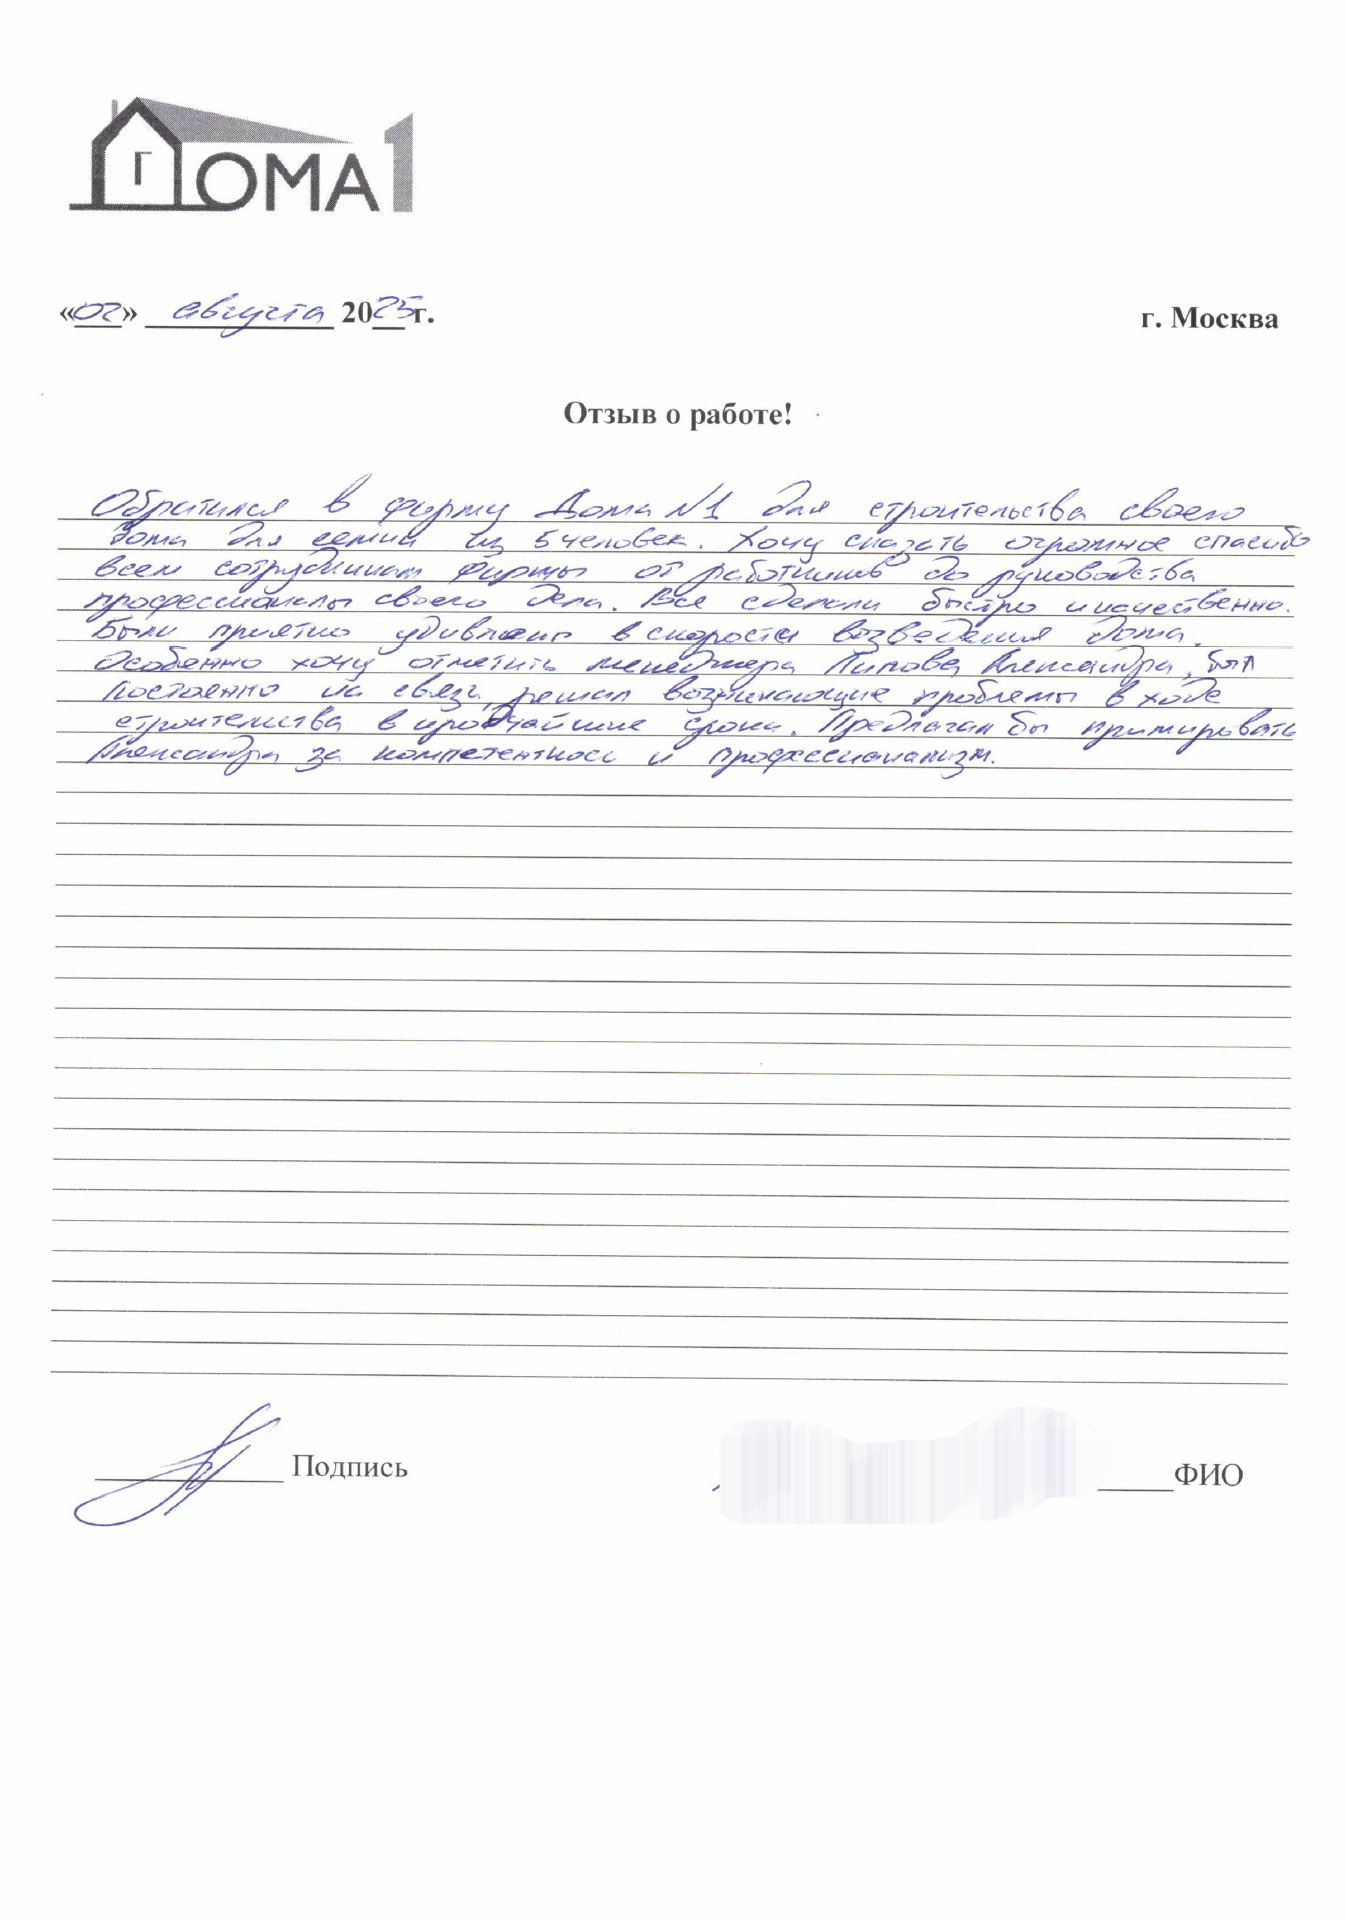 ДОМА1
«02» августа 2025г.
г. Москва
Отзыв о работе!
Обратился в фирму Дома №1 для строительства своего
дома для семьи из 5 человек. Хочу сказать огромное спасибо
всем сотрудникам фирмы от работников до руководства
профессионалы своего дела. Все сделали быстро и качественно.
Были приятно удивлены в скорости возведения дома.
Особенно хочу отметить менеджера Александра, был
постоянно на связи, решал возникающие проблемы в ходе
строительства в кротчайшие сроки. Предлагаю бы примировать
Александра за компетентность и профессионализм.
Подпись
ФИО